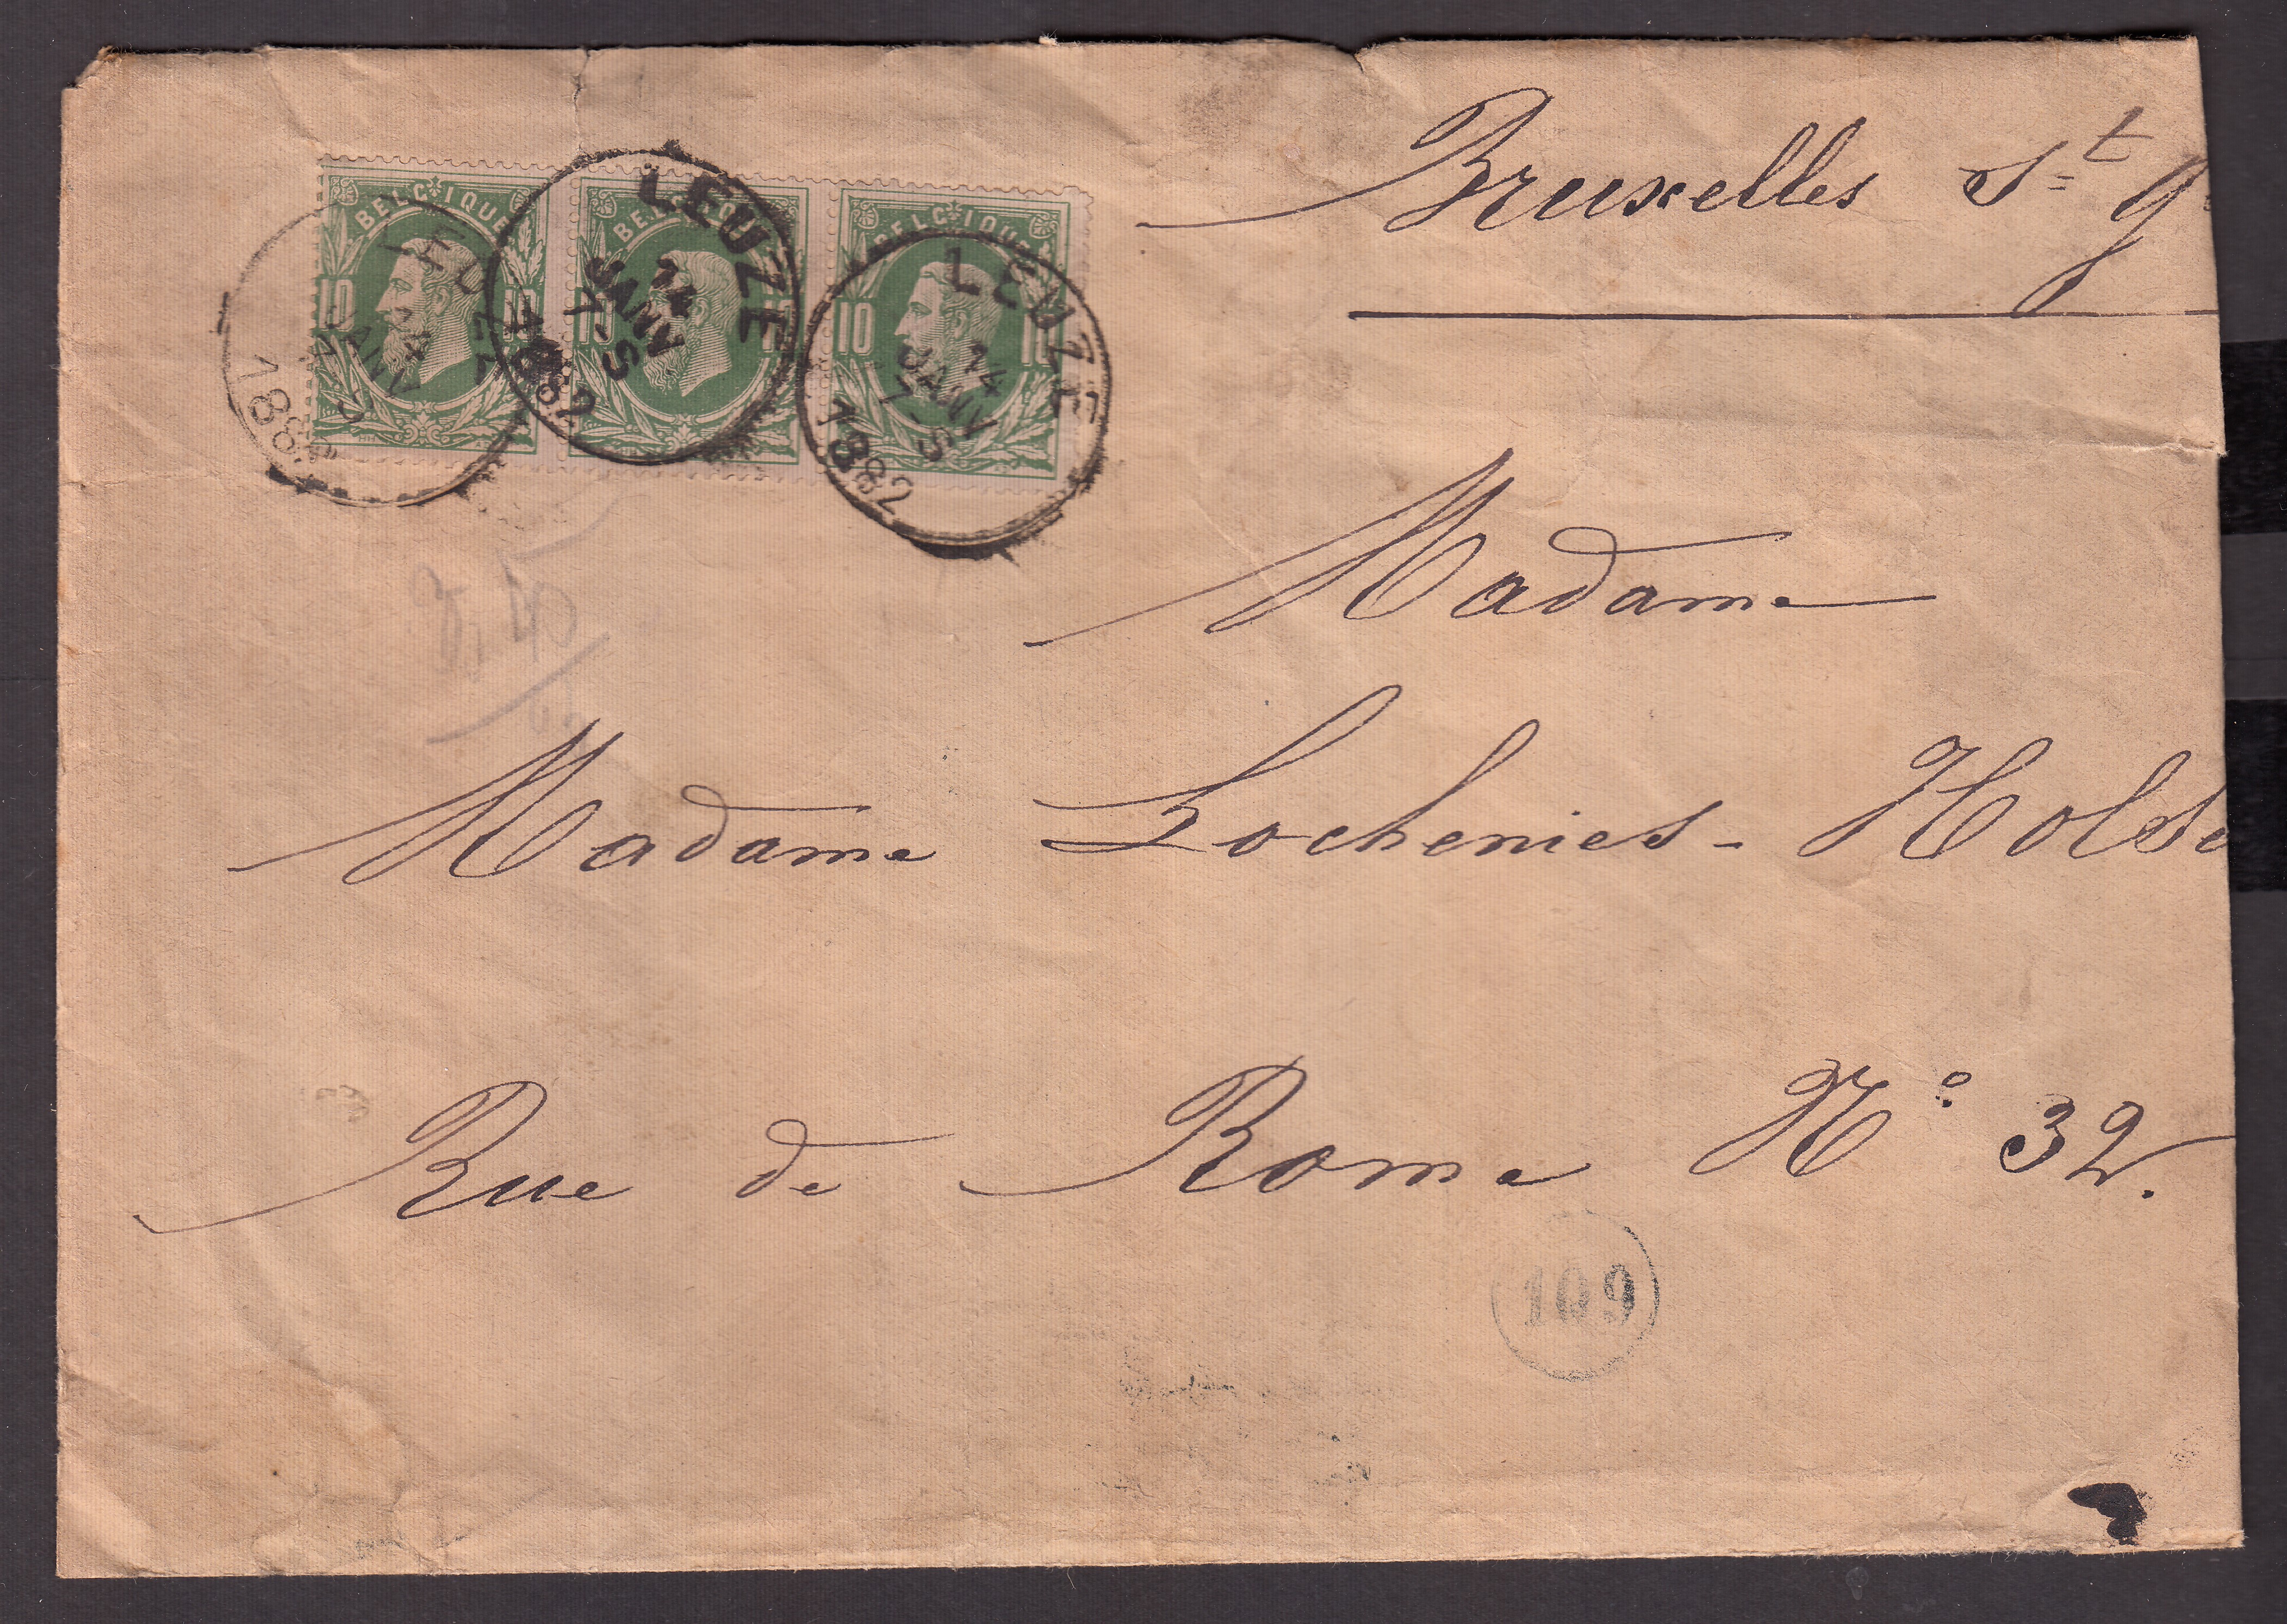 BELGIQUE BELGIQUE BELGIQUE
10 10 10 10
LEUZE
14
JANV
7-S
1882
LEUZE
14
JANV
7-S
1882
LEUZE
14
JANV
7-S
1882
Bruxelles St g
Madame
Madame Lochenies - Holse
Rue de Rome No 32.
109